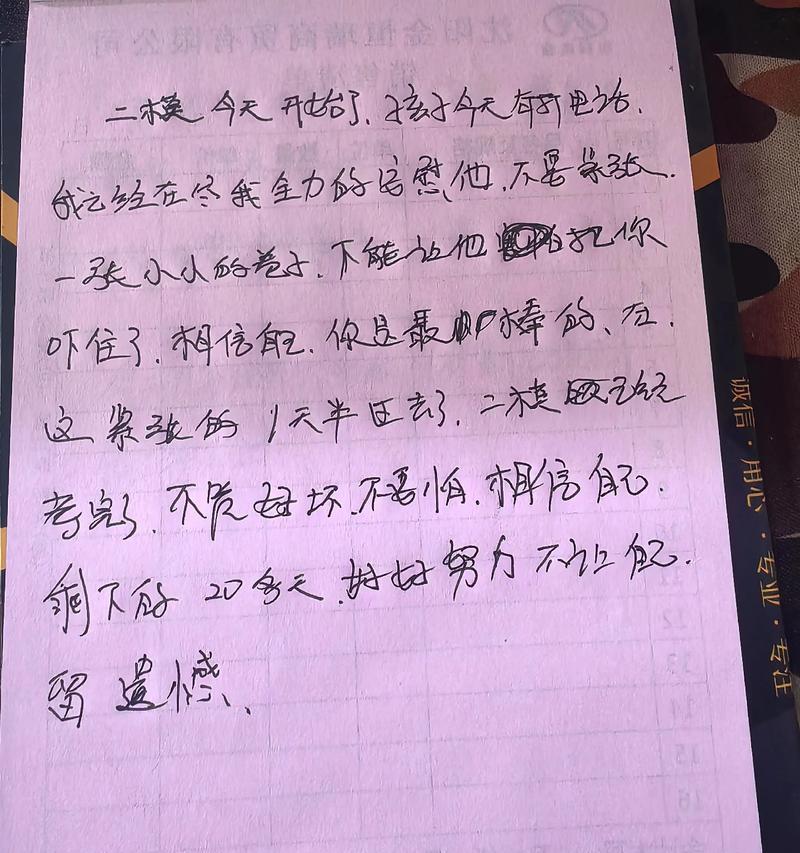 沈阳金恒瑞商贸有限公司
销售清单
二模今天开始了、孩子今天有打电话、
我已经在尽我全力的安慰他、不要紧张、
一张小小的卷子、不能让他把你
吓住了、相信自己、你是最棒的、在、
这紧张的1天半过去了、二模已经
考完了、不管好坏、不要怕、相信自己、
剩下的20多天、好好努力不让自己、
留遗憾、
诚信·用心·专业·专注
12
13
14
15
16